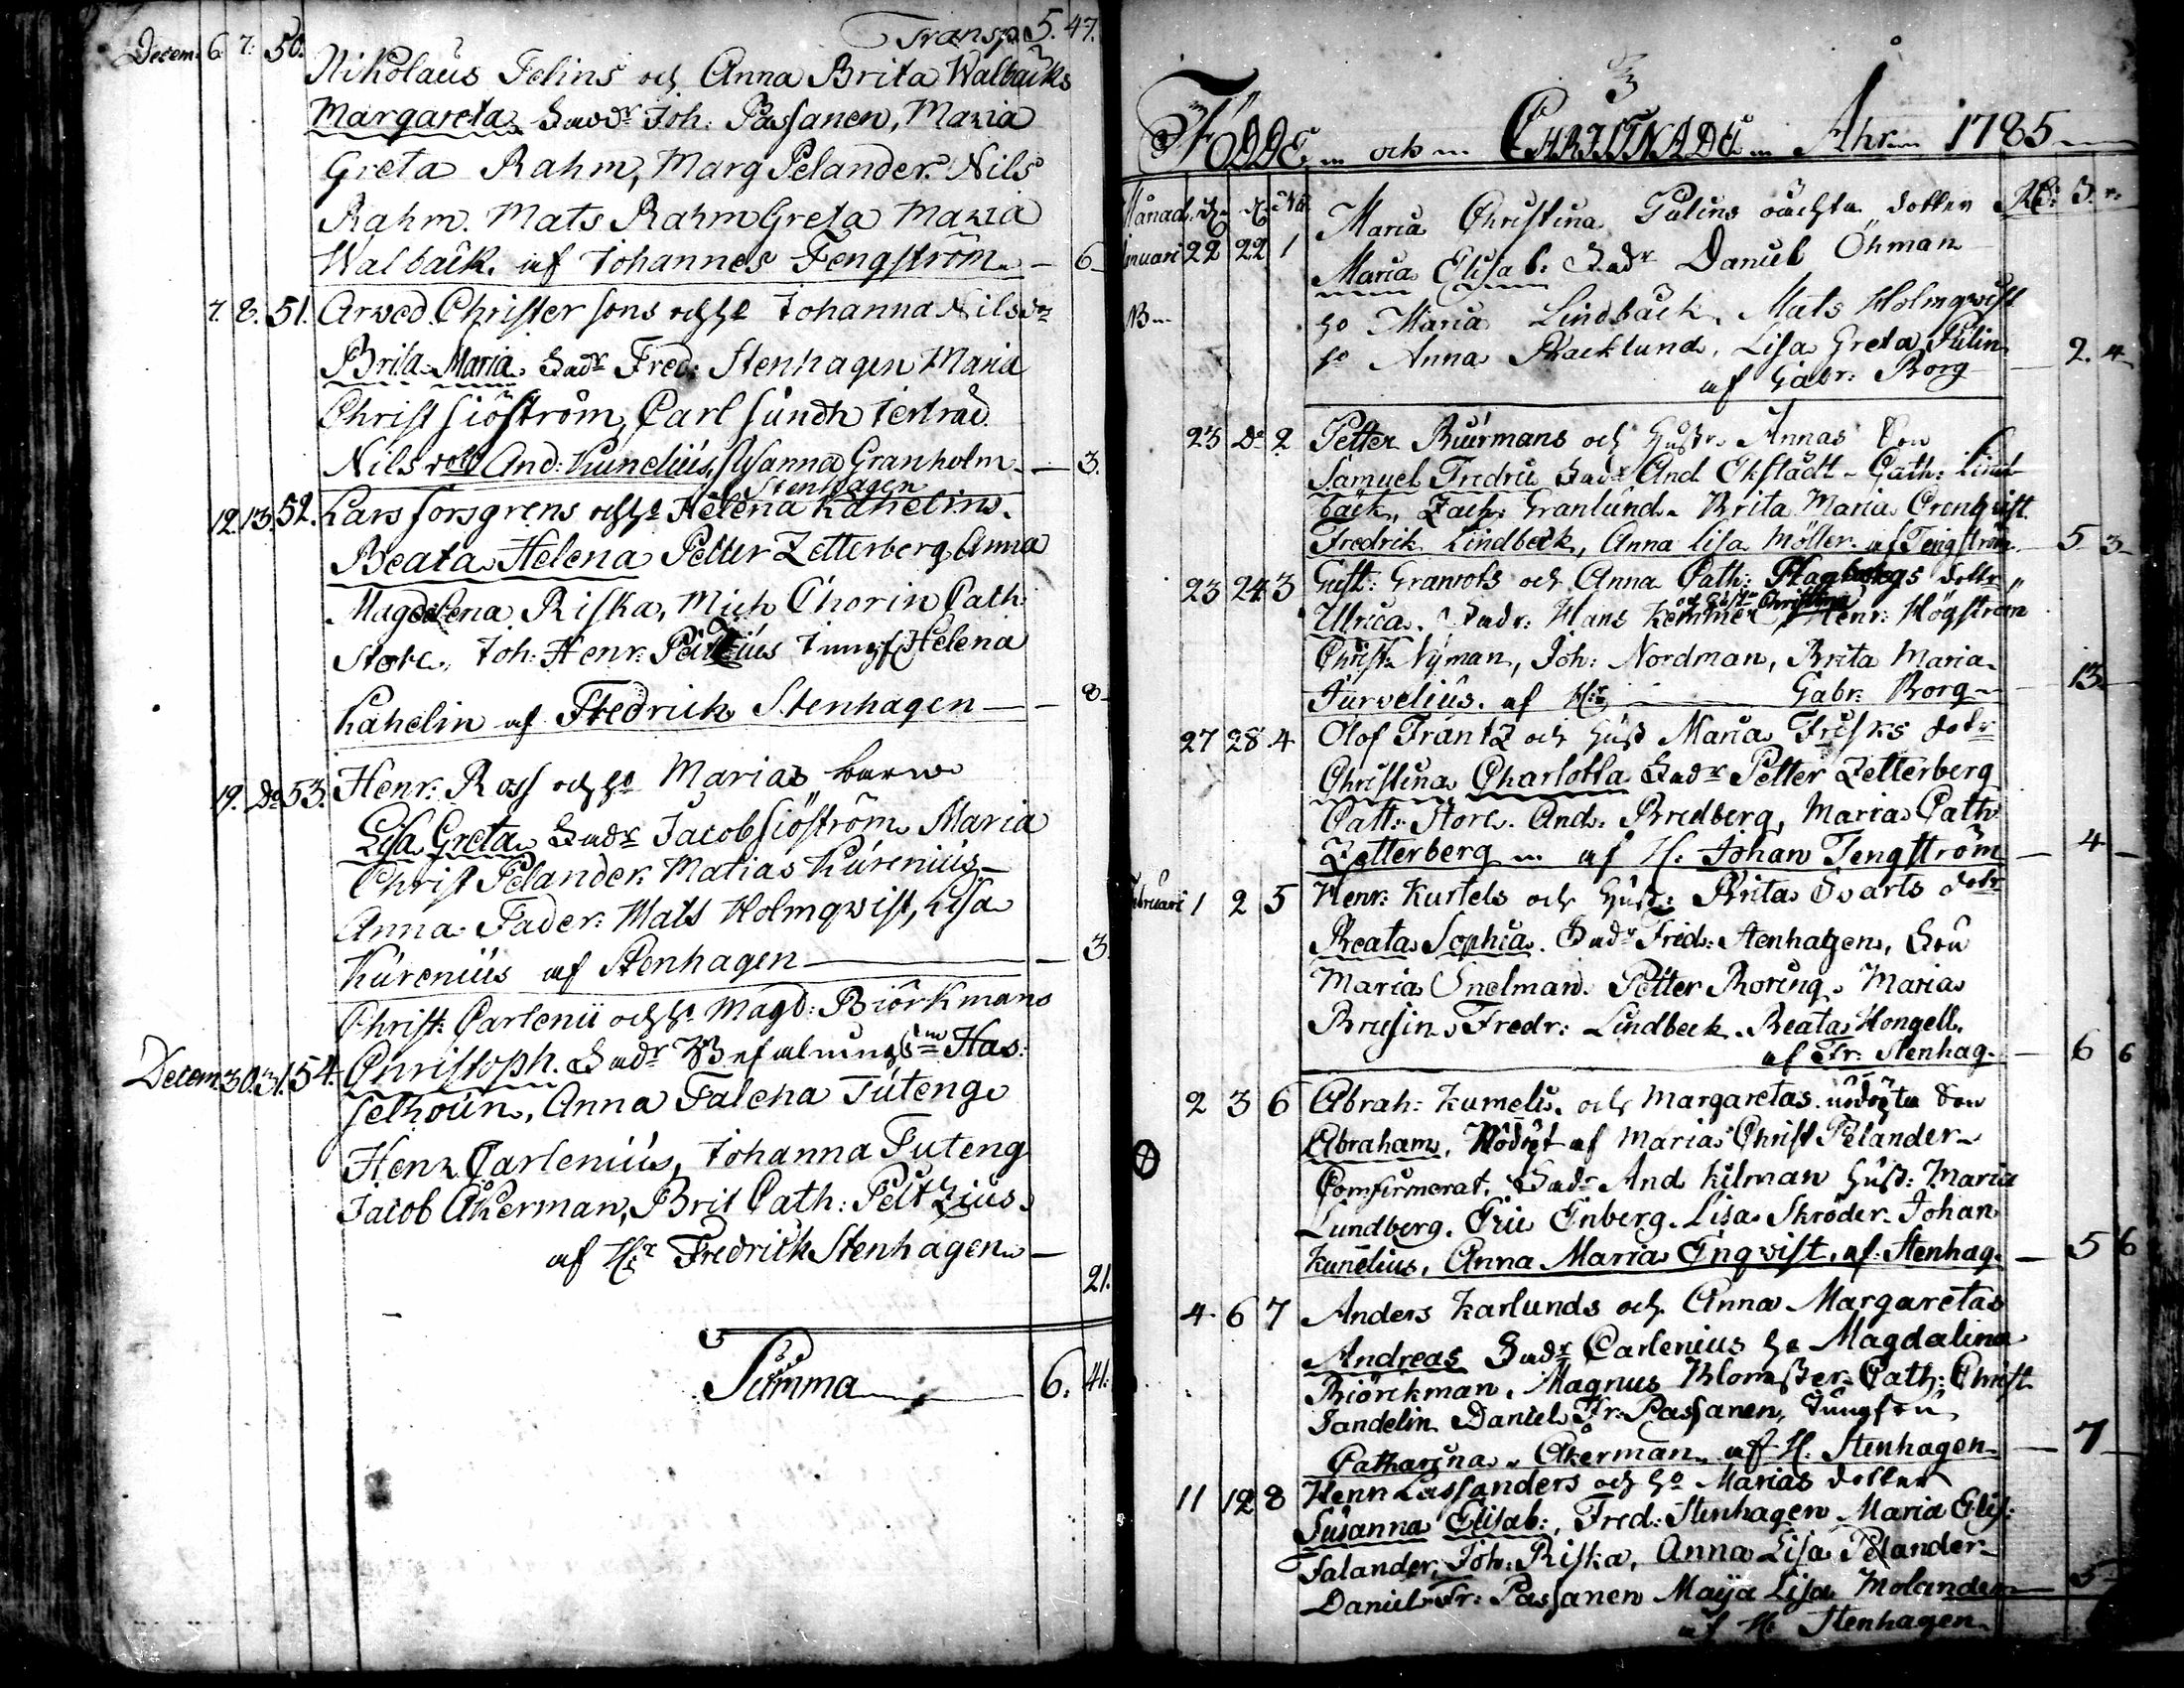 Transp. 5. 47.
Decem. 6. 7. 50. Nikolaus Felins och Anna Brita Walbäcks
Margareta. Fadr Joh. Passanen, Maria
Greta Rahm, Marg Pelander. Nils
Rahm. Mats Rahm Greta Maria
Walbäck. af Johannes Tengström — 6
7. 8. 51. Arved Christersons och Ho Johanna Nilsdr
Brita Maria. Fadr Fred: Stenhagen Maria
Christ Siöström, Carl Sundh
Nils And: Kumelius, Susanna Granholm — 3.
Stenhagen
12. 13. 52. Lars Forsgrens och Ho Helena Kahelins.
Beata Helena Petter Zetterberg Anna
Magdalena Riska, Mich Chorin Cath:
Store. Joh: Henr: Jungf Helena
Kahelin af Fredrick Stenhagen — 8
19. Do 53. Henr: Ross och Ho Marias barn
Lisa Greta. Fadr Jacob Siöström Maria
Christ Pelander. Matias Kurenius
Anna Fader: Mats Holmqwist, Lisa
Kurenius af Stenhagen — 3.
Christ: Carlenii och Ho Magd: Biörkmans
Decem. 30. 31. 54. Christoph. Fadr Befalningsm Has:
selhoun, Anna Falena Tuteng
Henr Carlenius, Johanna Tuteng
Jacob Åkerman, Brit Cath: Peltzius.
af Hr Fredrick Stenhagen — 21.
Summa — 6. 41.
3
FÖDDE och CHRISTNADE Åhr 1785
Månad. No
Maria Christina Pulins oächta dotter
Januari 22 22 1 Maria Elisab: Fadr Daniel Öhman
NB Ho Maria Lindbäck. Mats Holmqwist
Ho Anna Backlund, Lisa Greta Pulin
af Gabr: Borg — 2. 4
23 Do 2 Petter Buurmans och Hustr. Annas Son
Samuel Fredric Fadr And Ekstädt. Cath: Lind
bäck, Zach: Granlund. Brita Maria Cronqvist
Fredrik Lindbeck, Anna Lisa Möller. af Tengström — 5 3
23 24 3 Gust: Granrots och Anna Cath: Hagbergs dottr
och Hustr Christina
Ulrica. Fadr. Hans Kemmer Henr: Högström
Christ: Nyman, Joh: Nordman, Brita Maria
Jurvelius. af Hr — Gabr: Borg — 13
27 28 4 Olof Frantz och Hust Maria Frisks dotr
Christina Charlotta Fadr Petter Zetterberg
Cath: Store. And. Bredberg, Maria Cath
Zetterberg af H: Johan Tengström — 4
Februari 1 2 5 Henr: Kurtels och Hust: Brita Svarts dotr
Beata Sophia. Fadr Fred: Stenhagen, Fru
Maria Snelman. Petter Roring. Maria
Brusin. Fredr: Lindbeck. Beata Hongell.
af Fr: Stenhag. — 6 6
2 3 6 Abrah: Kumelii. och Margaretas nödögta Son
Abraham, Nödögt af Maria Christ Pelander
Comfirmerat. Fadr And Kilman Hust: Maria
Lundberg. Eric Enberg. Lisa Skröder. Johan
Kumelius, Anna Maria Enqvist. af: Stenhag. — 5 6
4 6 7 Anders Karlunds och Anna Margaretas
Andreas Fadr Carlenius Ho Magdalina
Biörckman. Magnus Cath: Christ
Sandelin Daniel Fr: Passanen, Jungfru
Catharina Åkerman. af H. Stenhagen — 7
11 12 8 Henr Cassanders och Ho Marias dotter
Susanna Elisab:, Fred: Stenhagen Maria Elis:
Falander, Joh: Riska, Anna Lisa Pelander
Daniel Fr: Passanen Maija Lisa Molander — 5
af H. Stenhagen.